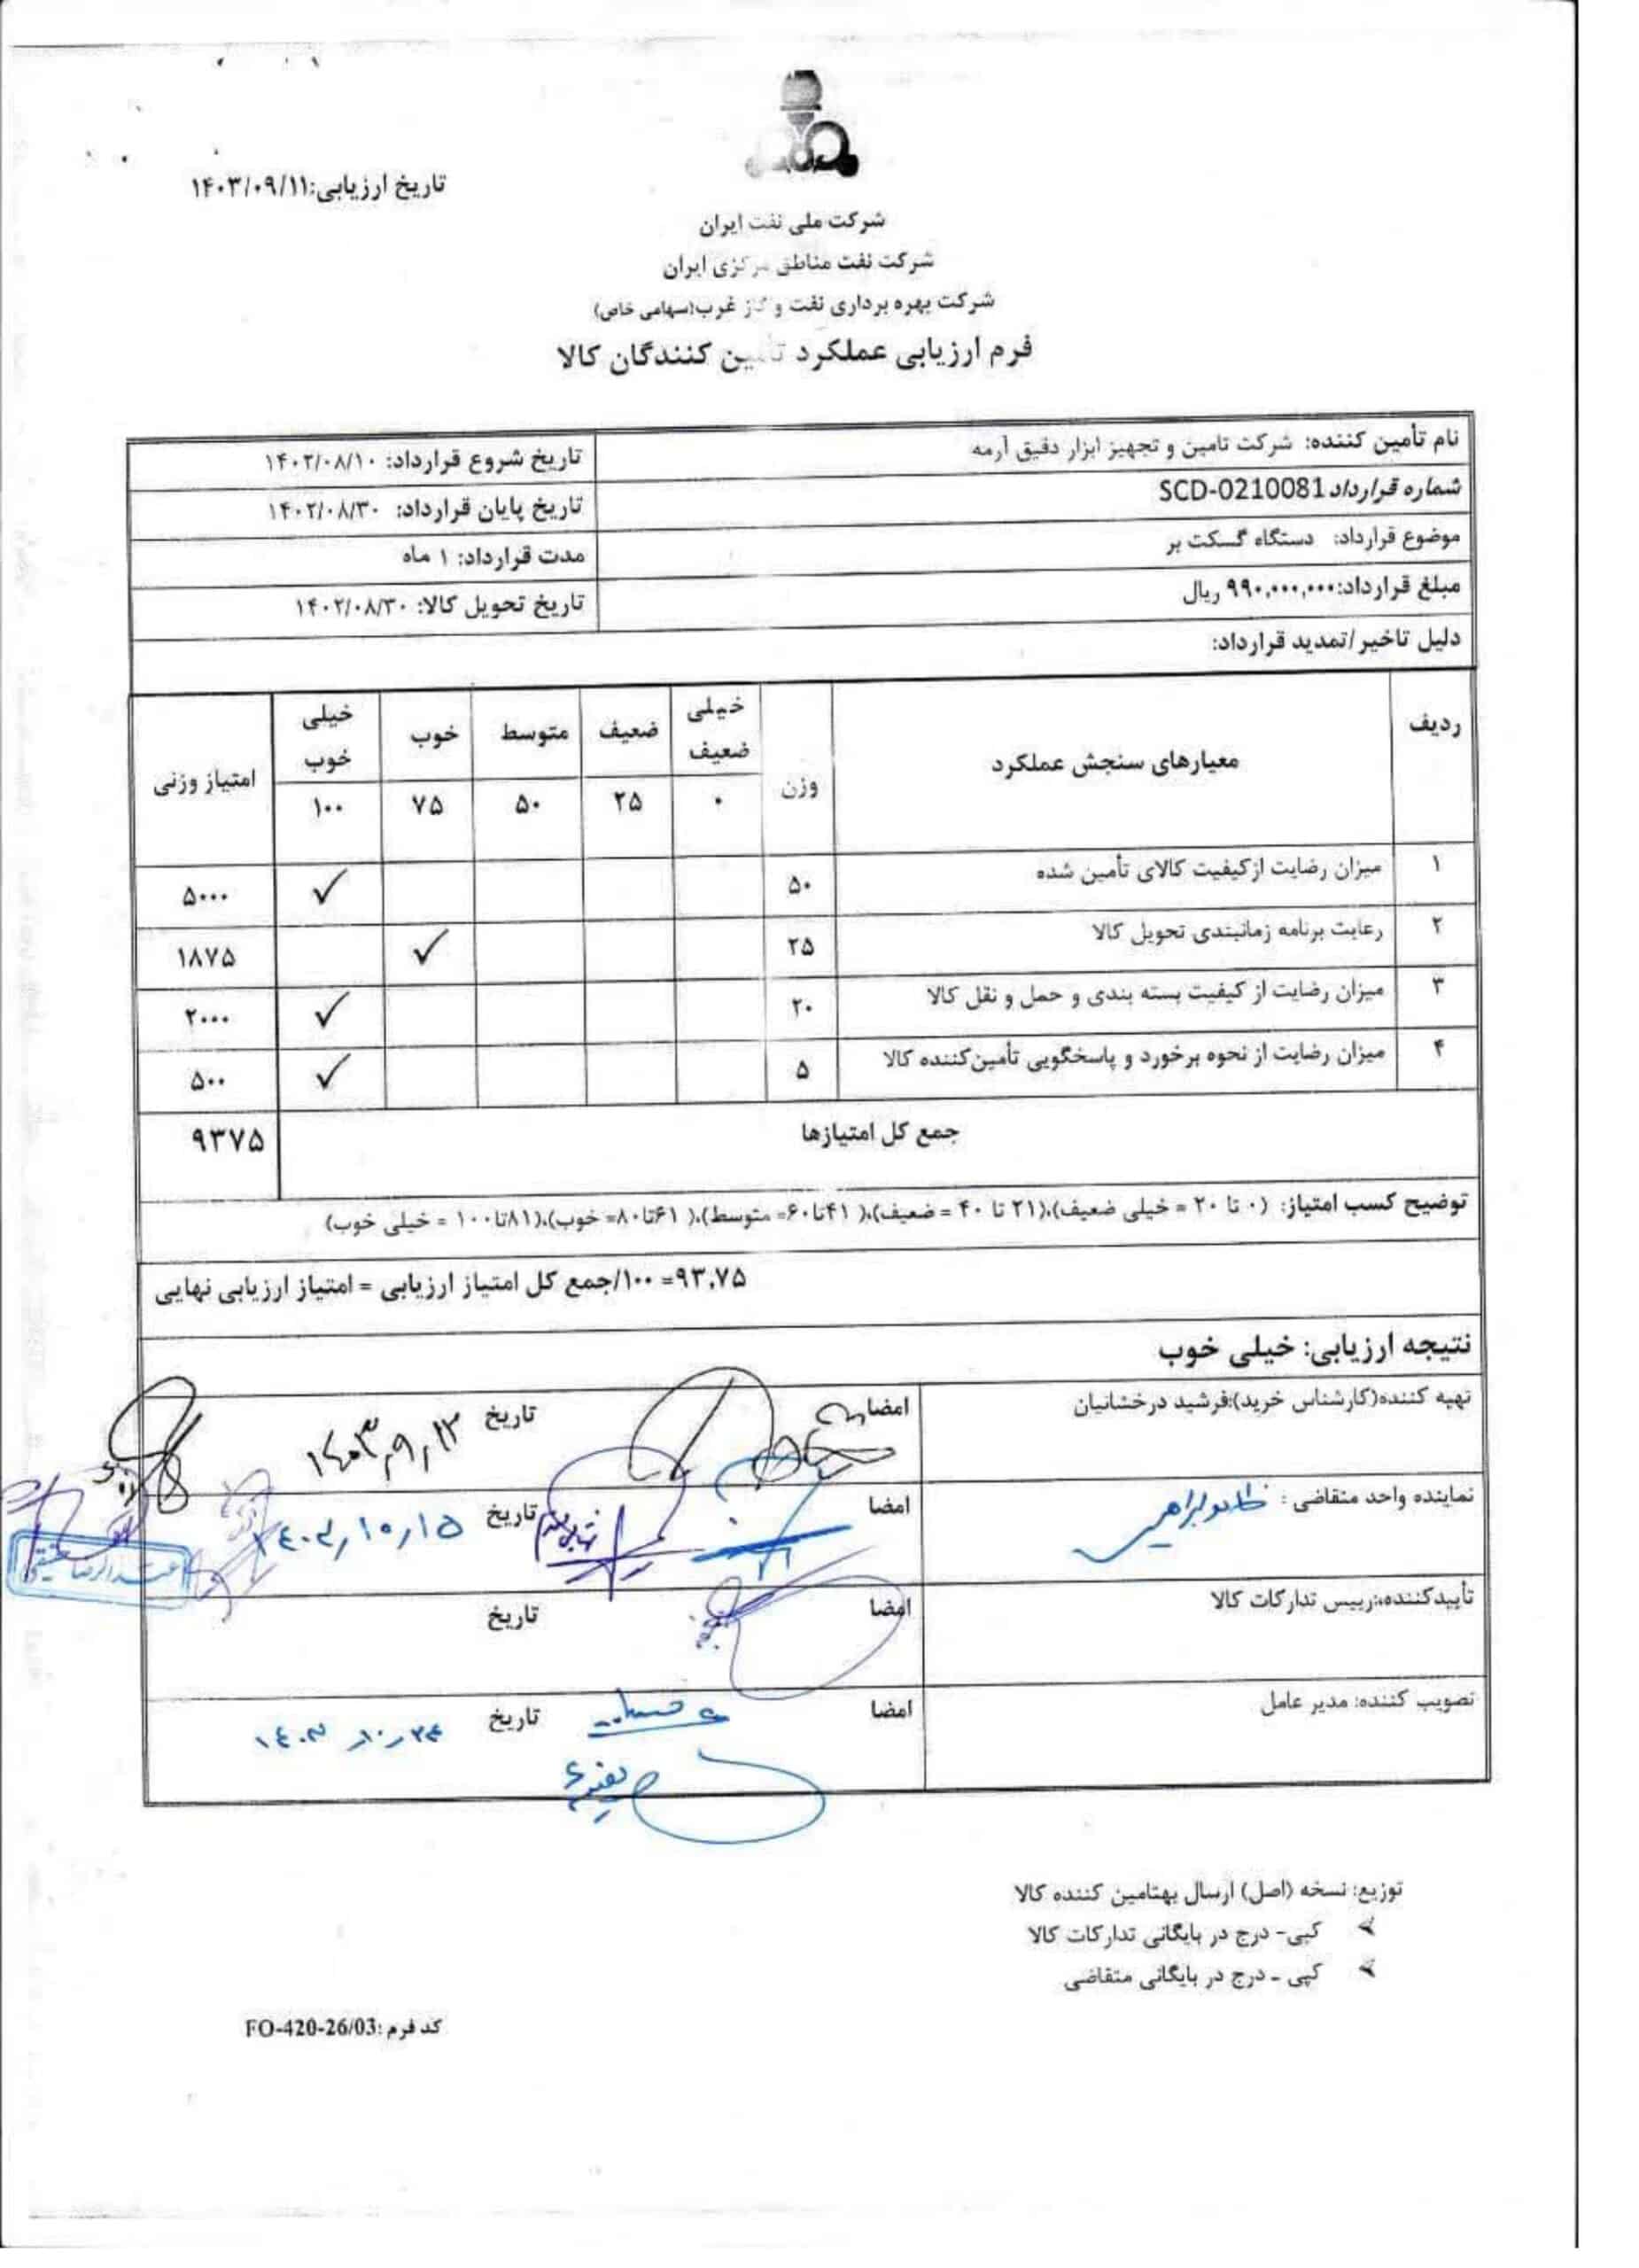 تاریخ ارزیابی:۱۴۰۳/۰۹/۱۱
شرکت ملی نفت ایران
شرکت نفت مناطق مرکزی ایران
شرکت بهره برداری نفت و گاز غرب(سهامی خاص)
فرم ارزیابی عملکرد تأمین کنندگان کالا
نام تأمین کننده: شرکت تامین و تجهیز ابزار دقیق آرمه
تاریخ شروع قرارداد: ۱۴۰۲/۰۸/۱۰
شماره قرارداد SCD-0210081
تاریخ پایان قرارداد: ۱۴۰۲/۰۸/۳۰
موضوع قرارداد: دستگاه گسکت بر
مدت قرارداد: ۱ ماه
مبلغ قرارداد:۹۹۰,۰۰۰,۰۰۰ ریال
تاریخ تحویل کالا: ۱۴۰۲/۰۸/۳۰
دلیل تاخیر/تمدید قرارداد:
ردیف معیارهای سنجش عملکرد وزن خیلی ضعیف ضعیف متوسط خوب خیلی خوب امتیاز وزنی
۰ ۲۵ ۵۰ ۷۵ ۱۰۰
۱ میزان رضایت ازکیفیت کالای تأمین شده ۵۰ ✓ ۵۰۰۰
۲ رعایت برنامه زمانبندی تحویل کالا ۲۵ ✓ ۱۸۷۵
۳ میزان رضایت از کیفیت بسته بندی و حمل و نقل کالا ۲۰ ✓ ۲۰۰۰
۴ میزان رضایت از نحوه برخورد و پاسخگویی تأمین‌کننده کالا ۵ ✓ ۵۰۰
جمع کل امتیازها ۹۳۷۵
توضیح کسب امتیاز: (۰ تا ۲۰ = خیلی ضعیف)،(۲۱ تا ۴۰ =ضعیف)،( ۴۱تا۶۰= متوسط)،( ۶۱تا۸۰= خوب)،(۸۱تا۱۰۰ = خیلی خوب)
۹۳,۷۵= ۱۰۰/جمع کل امتیاز ارزیابی = امتیاز ارزیابی نهایی
نتیجه ارزیابی: خیلی خوب
تهیه کننده(کارشناس خرید):فرشید درخشانیان امضا تاریخ ۱۴۰۳,۹,۱۳
نماینده واحد متقاضی : امضا تاریخ ۱۴۰۳,۱۰,۱۵
تأییدکننده:رییس تدارکات کالا امضا تاریخ
تصویب کننده: مدیر عامل امضا تاریخ ۱۴۰۳,۱۰,۲۴
توزیع: نسخه (اصل) ارسال بهتامین کننده کالا
➢ کپی- درج در بایگانی تدارکات کالا
➢ کپی - درج در بایگانی متقاضی
کد فرم :FO-420-26/03